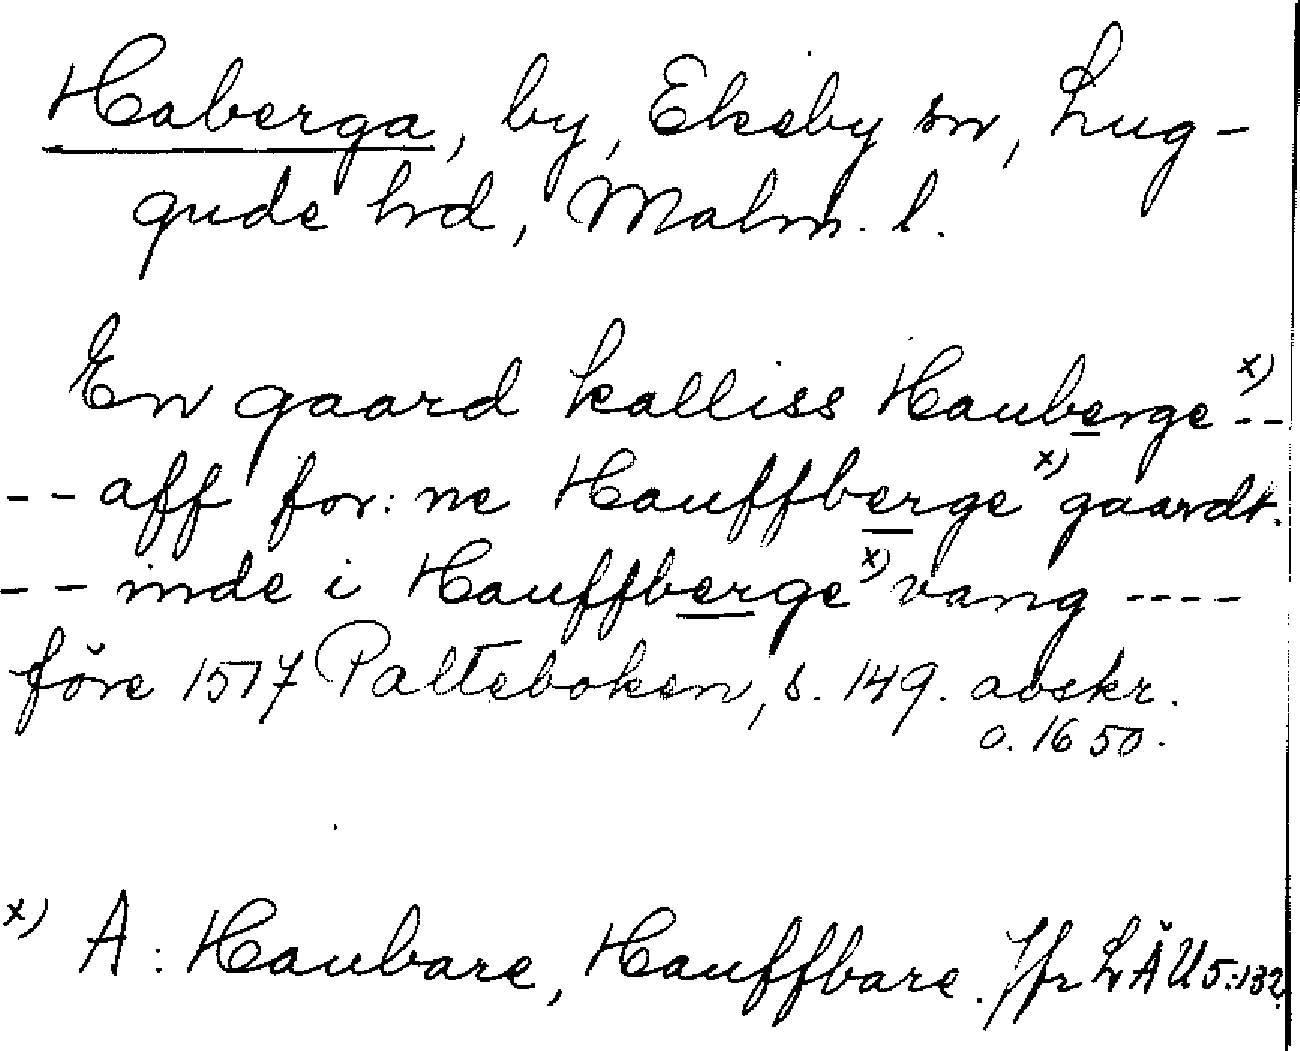 Haberga, by, Ekeby sn, Lug-
gude hrd, Malm. l.
En gaard kalliss Hauberge x) --
-- aff for: ne Hauffberge x) gaardt.
-- inde i Hauffberge x) vang ----
före 1517 Palteboken, s. 149. avskr.
o. 1650.
x) A: Haubare, Hauffbare. Jfr LÄU 5:132.